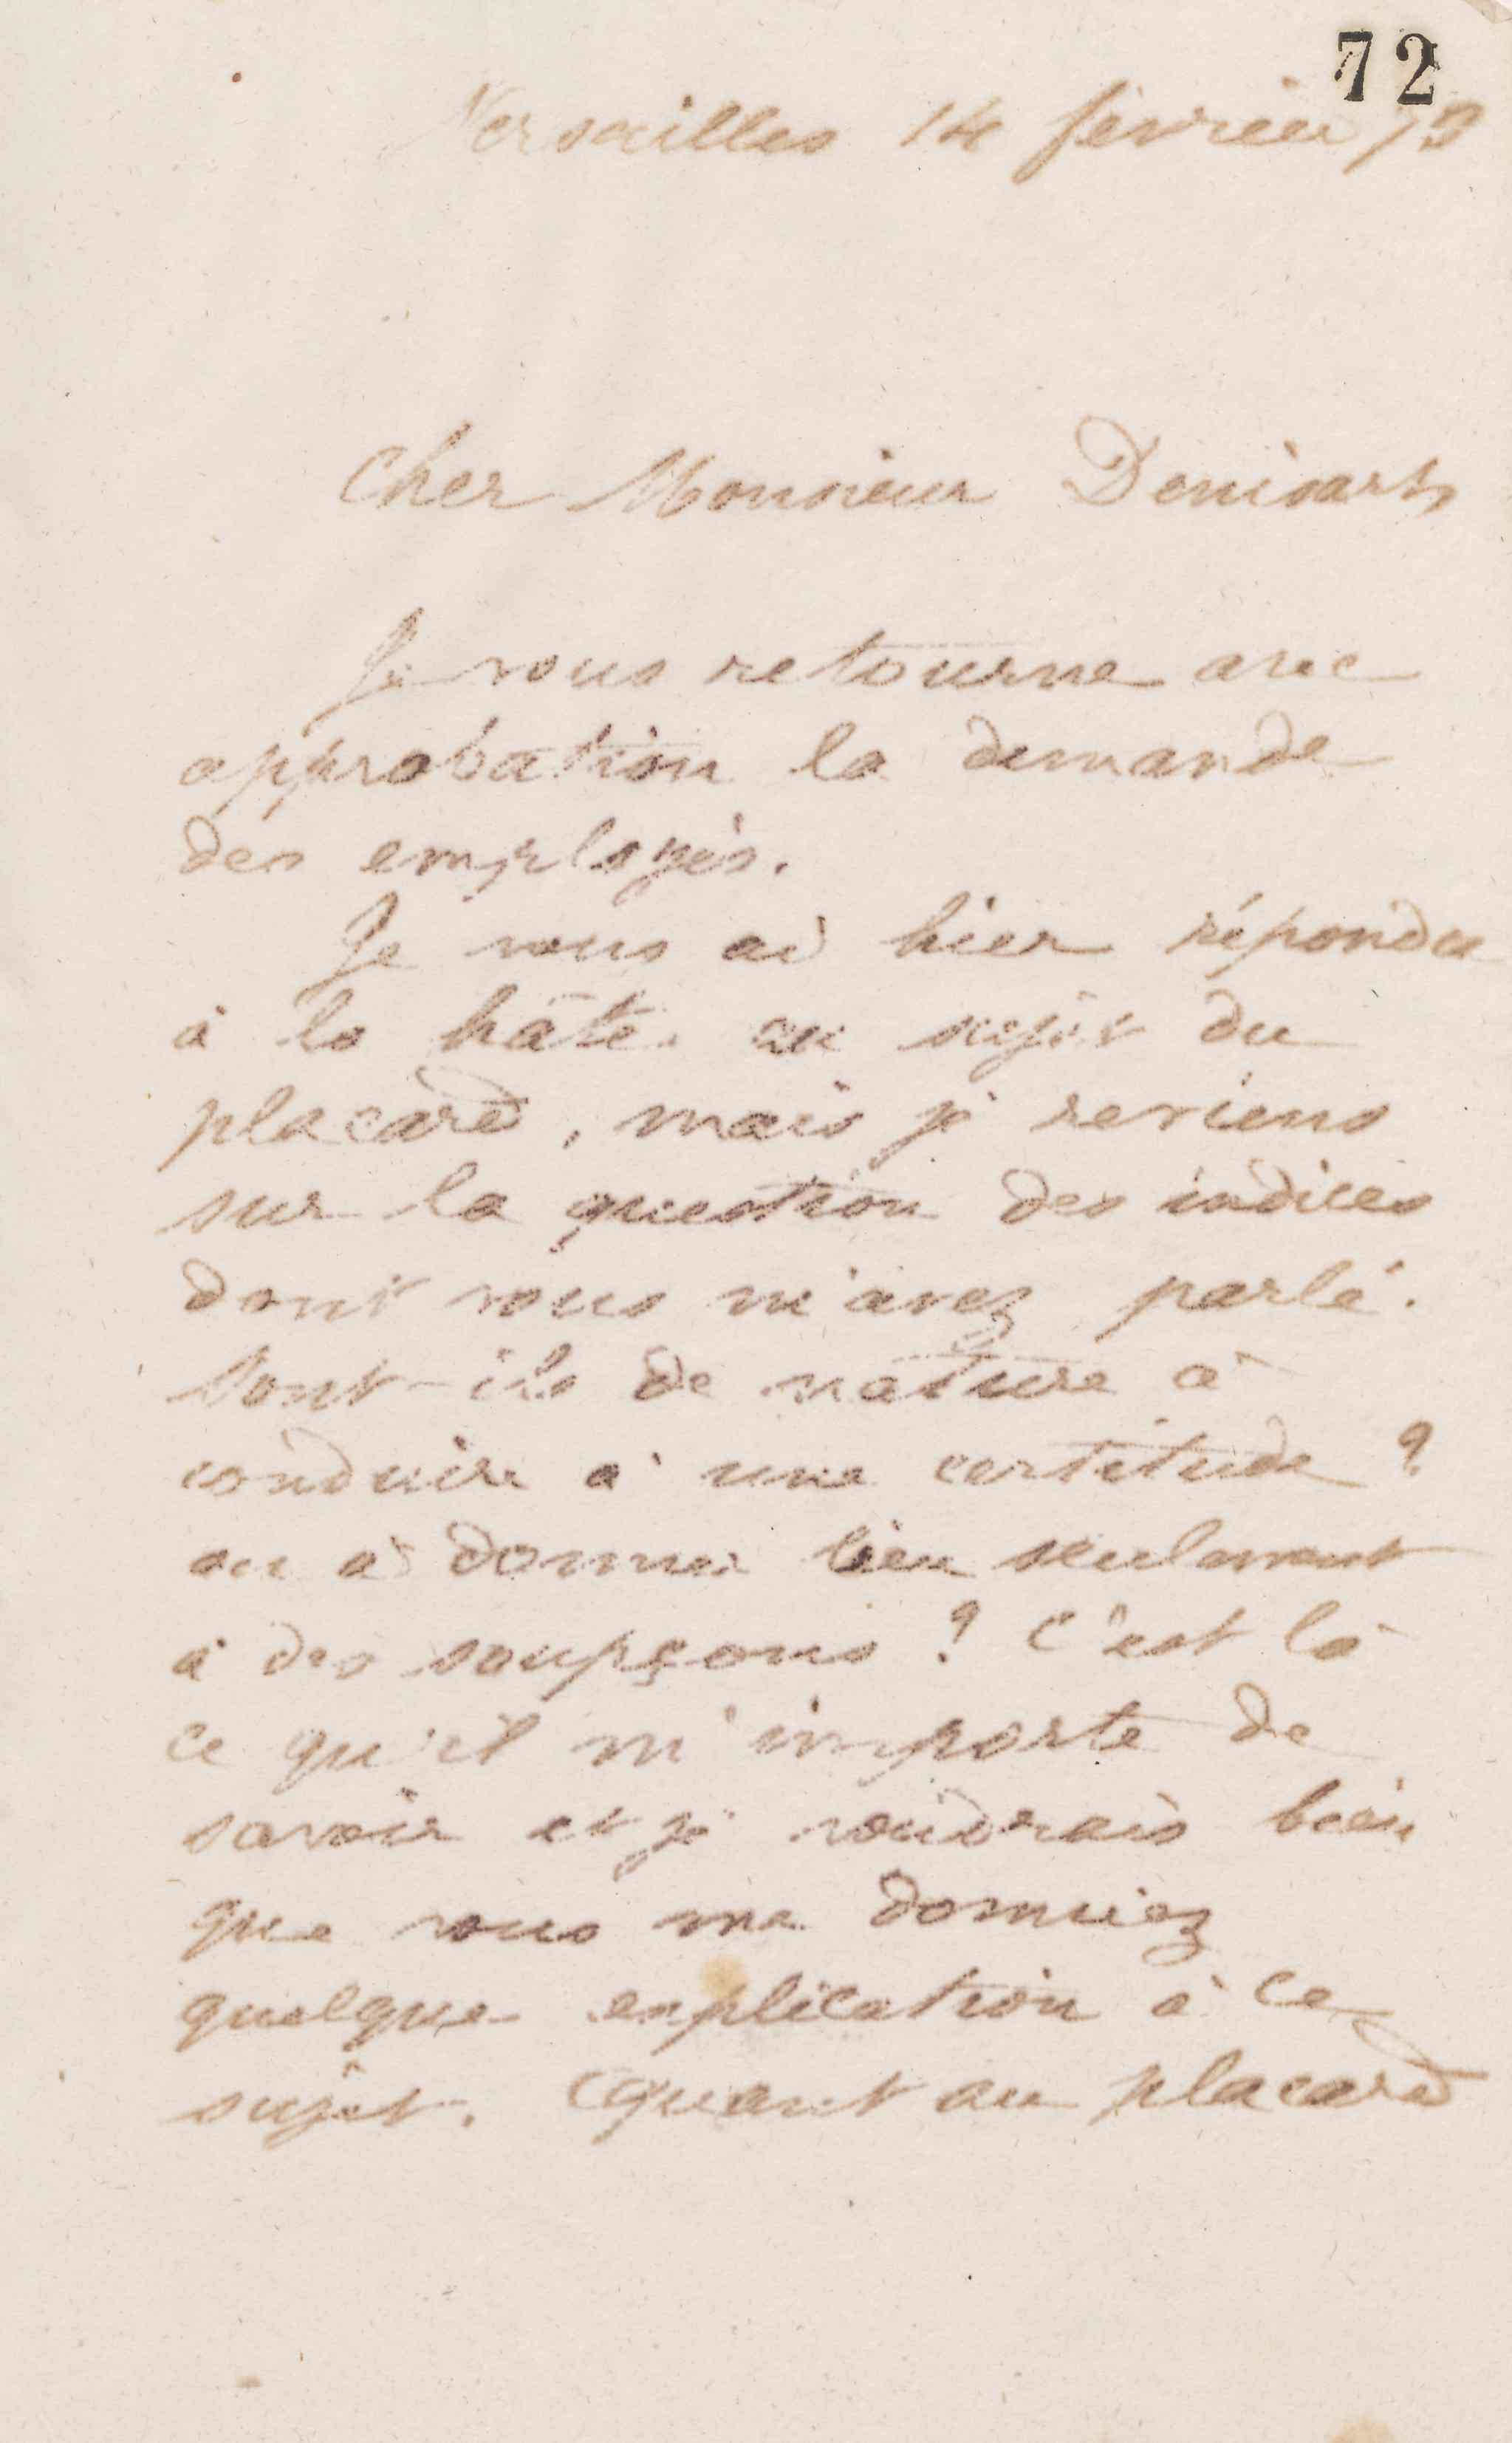 72
Versailles 14 février 73
Cher Monsieur Denisart,
Je vous retourne avec
approbation la demande
des employés.
Je vous ai hier répondu
à la hâte au sujet du
placard, mais je reviens
sur la question des indices
dont vous m'avez parlé.
Sont-ils de nature à
conduire à une certitude ?
ou à donner lieu seulement
à des soupçons ? C'est là
ce qu'il m'importe de
savoir et je voudrais bien
que vous me donniez
quelque explication à ce
sujet. Quant au placard